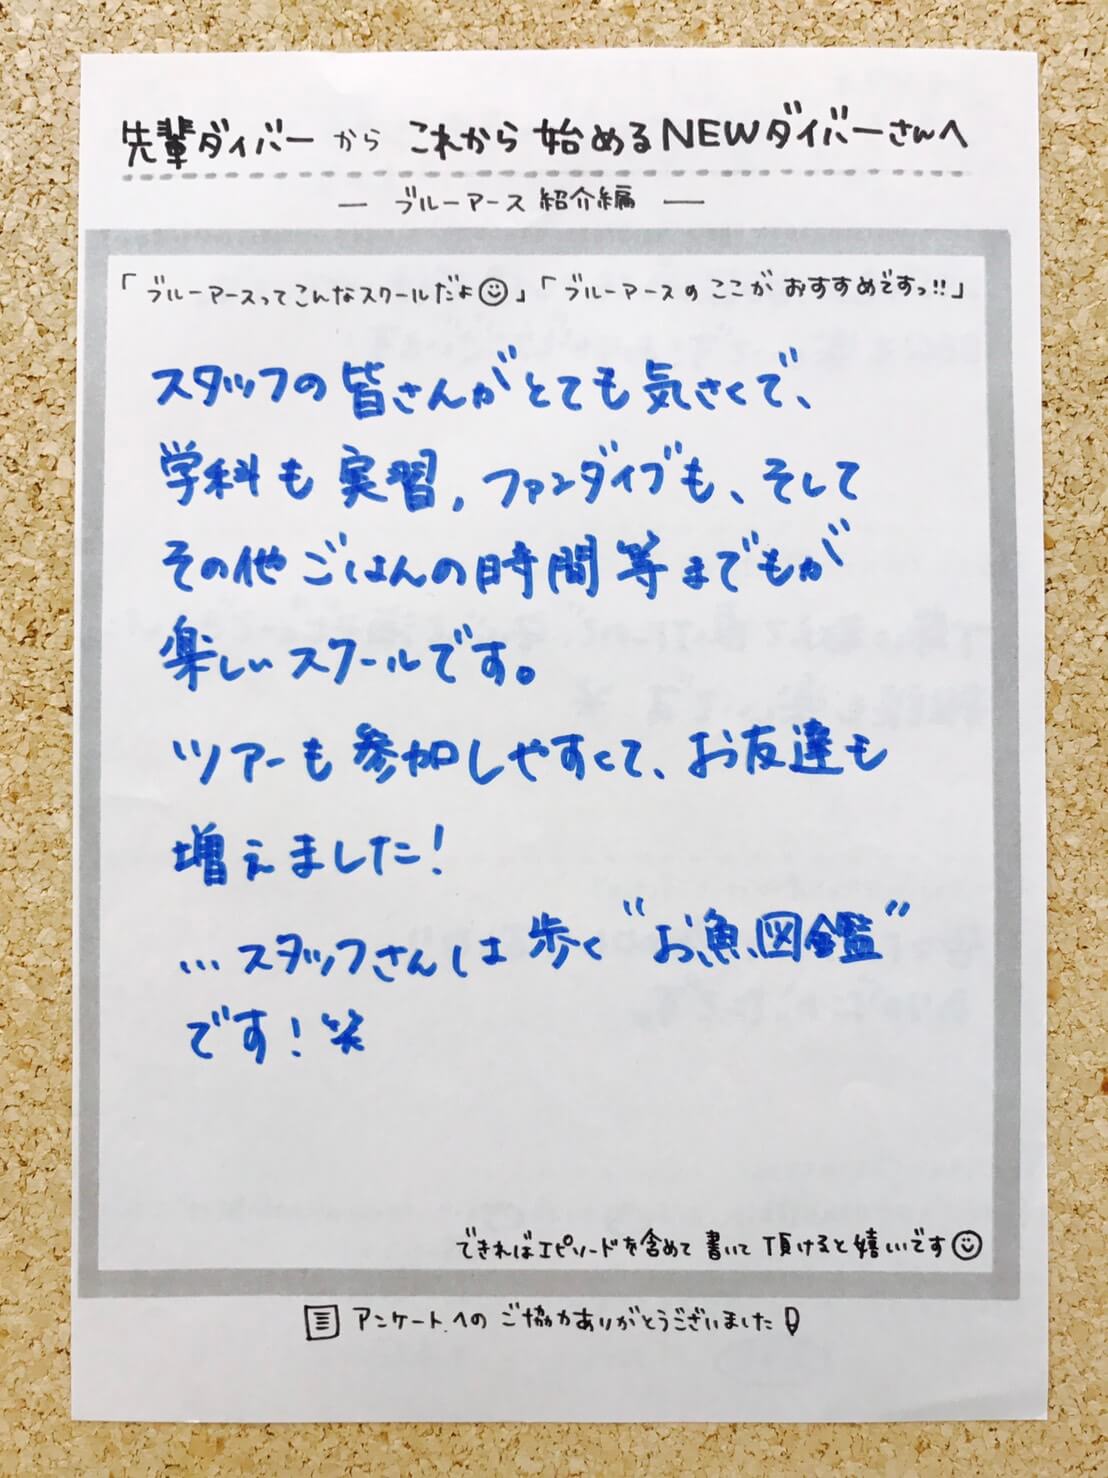 先輩ダイバー から これから 始める NEWダイバーさんへ
― ブルーアース 紹介編 ―
「ブルーアースってこんなスクールだよ☺」「ブルーアースの ここが おすすめですっ!!」
スタッフの 皆さんが とても 気さくで、
学科も 実習, ファンダイブも、そして
その他 ごはんの時間 等までもが
楽しいスクールです。
ツアーも 参加しやすくて、お友達も
増えました!
…スタッフさんは 歩く “お魚図鑑”
です! 笑
できればエピソードを含めて 書いて 頂けると嬉しいです☺
アンケートへの ご協力ありがとうございました